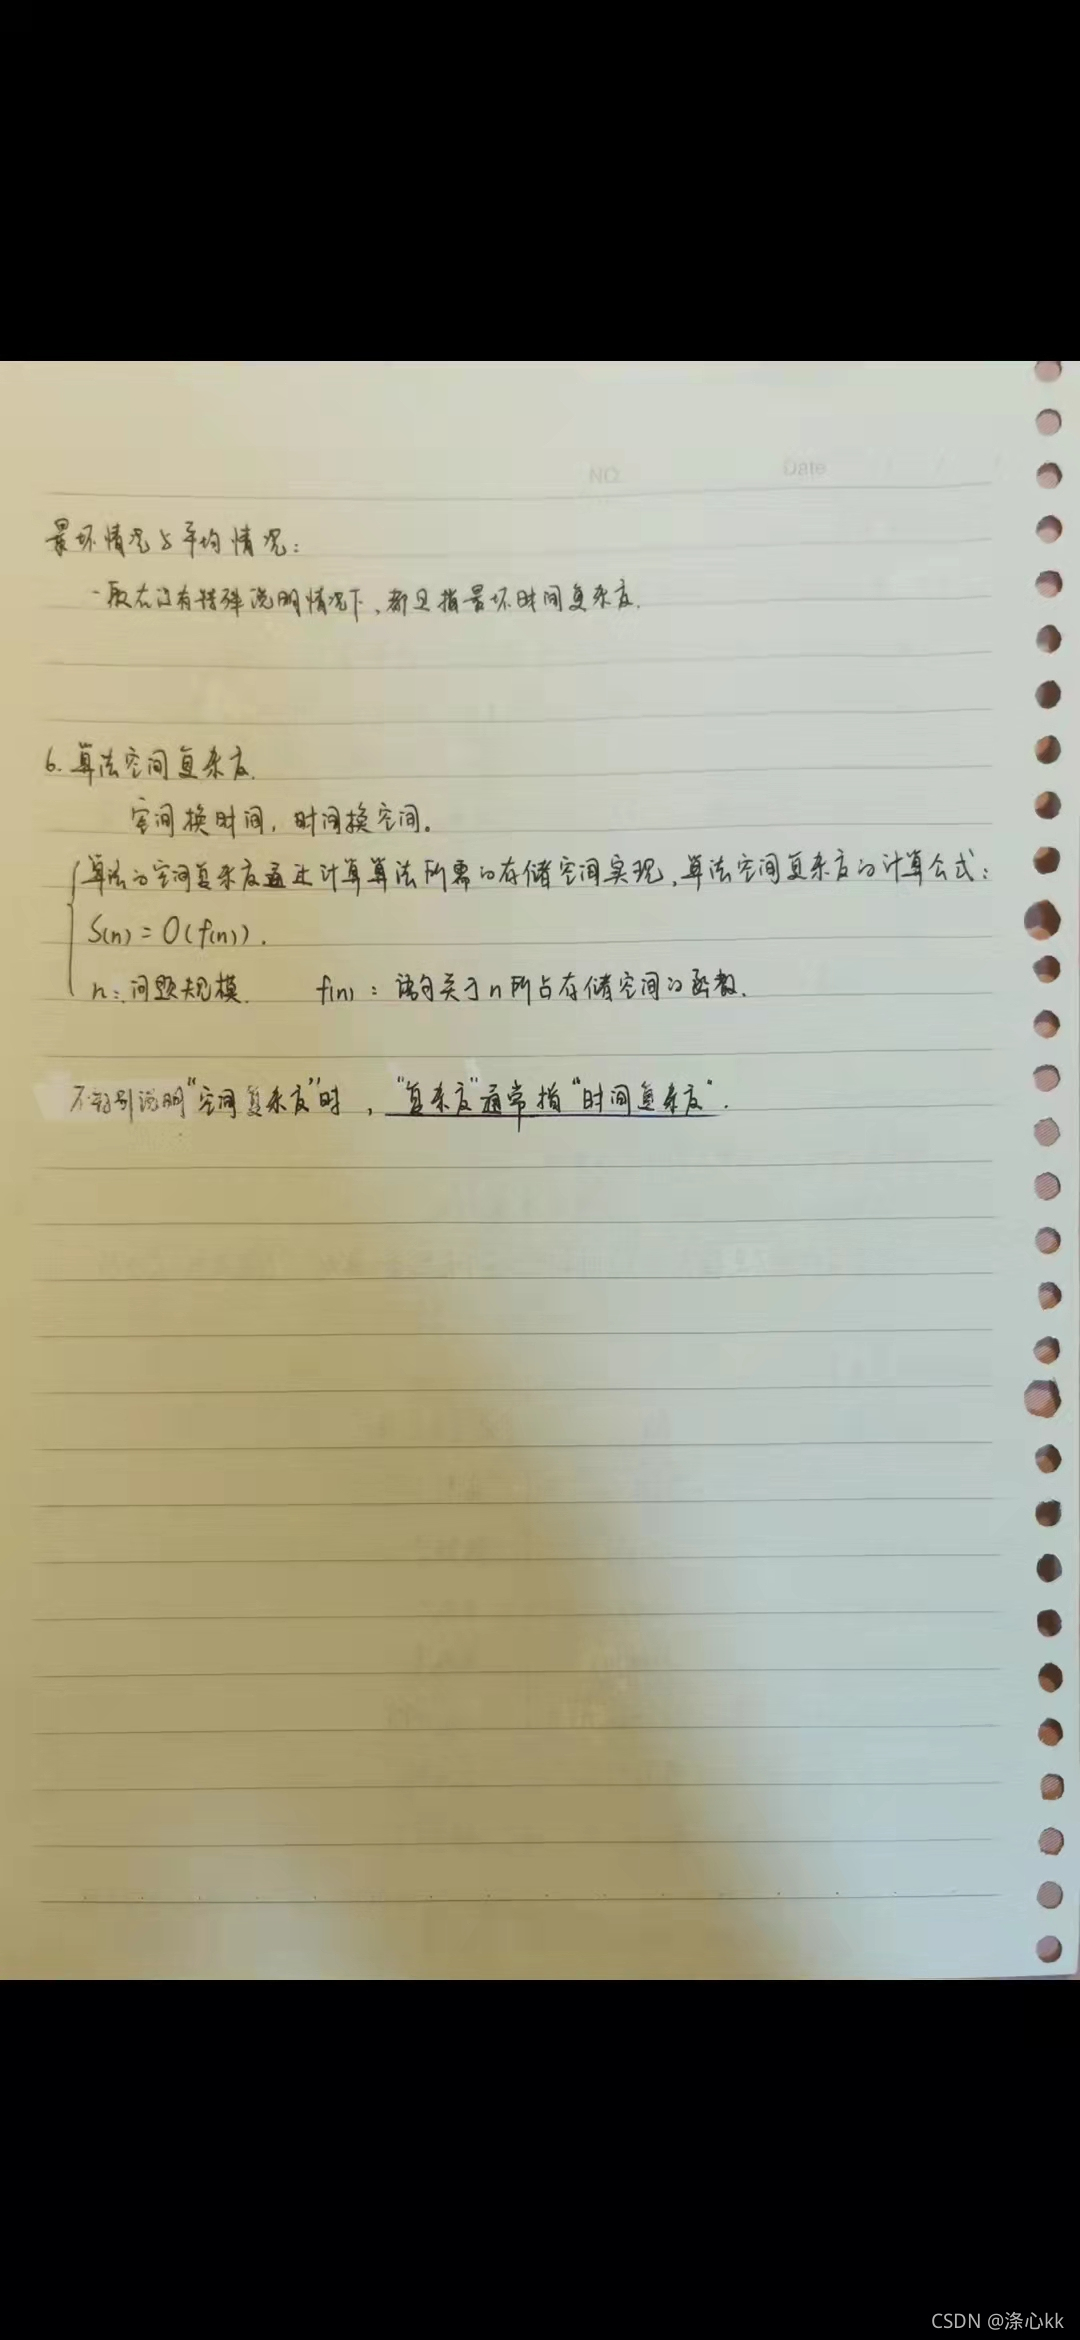 NO.
Date
最坏情况与平均情况:
一般在没有特殊说明情况下,都是指最坏时间复杂度.
6.算法空间复杂度.
空间换时间,时间换空间。
算法的空间复杂度通过计算算法所需的存储空间实现,算法空间复杂度的计算公式:
S(n)=O(f(n)).
n:问题规模. f(n):语句关于n所占存储空间的函数.
不特别说明“空间复杂度”时,“复杂度”通常指“时间复杂度”.
CSDN @涤心kk